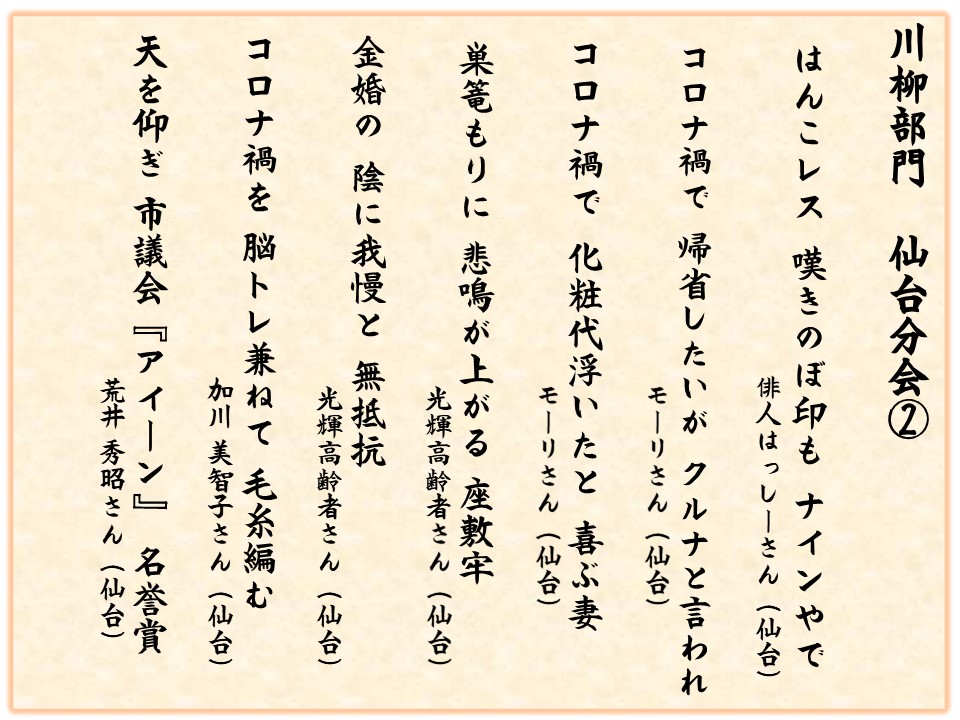 川柳部門　仙台分会②
はんこレス 嘆きのぼ印も ナインやで
俳人はっしーさん（仙台）
コロナ禍で 帰省したいが クルナと言われ
モーリさん（仙台）
コロナ禍で 化粧代浮いたと 喜ぶ妻
モーリさん（仙台）
巣篭もりに 悲鳴が上がる 座敷牢
光輝高齢者さん（仙台）
金婚の 陰に我慢と 無抵抗
光輝高齢者さん（仙台）
コロナ禍を 脳トレ兼ねて 毛糸編む
加川 美智子さん（仙台）
天を仰ぎ 市議会『アイーン』 名誉賞
荒井 秀昭さん（仙台）